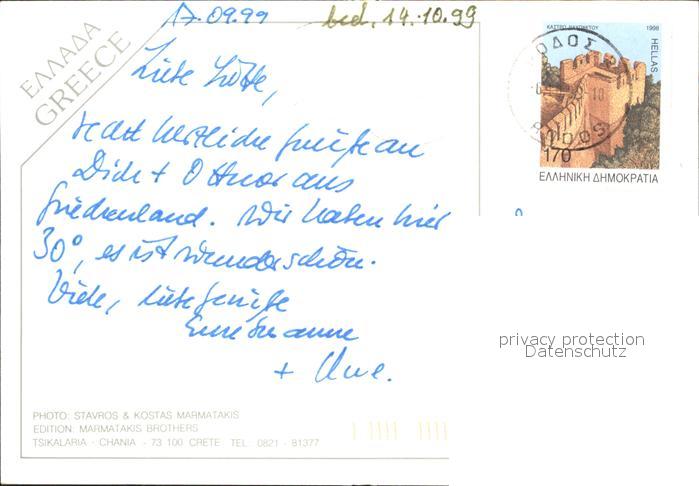 17.09.99 bed. 14.10.99
ΕΛΛΑΔΑ
GREECE
Liebe Lotte,
recht herzliche Grüße an
Dich + Ottmar aus
Griechenland. Wir haben hier
30°, es ist wunderschön.
Viele, liebe Grüße
Eure Susanne
+ Uwe.
PHOTO: STAVROS & KOSTAS MARMATAKIS
EDITION: MARMATAKIS BROTHERS
TSIKALARIA - CHANIA - 73 100 CRETE TEL. 0821 - 81377
1998
HELLAS
ΡΟΔΟΣ
RODOS
170
ΕΛΛΗΝΙΚΗ ΔΗΜΟΚΡΑΤΙΑ
privacy protection
Datenschutz